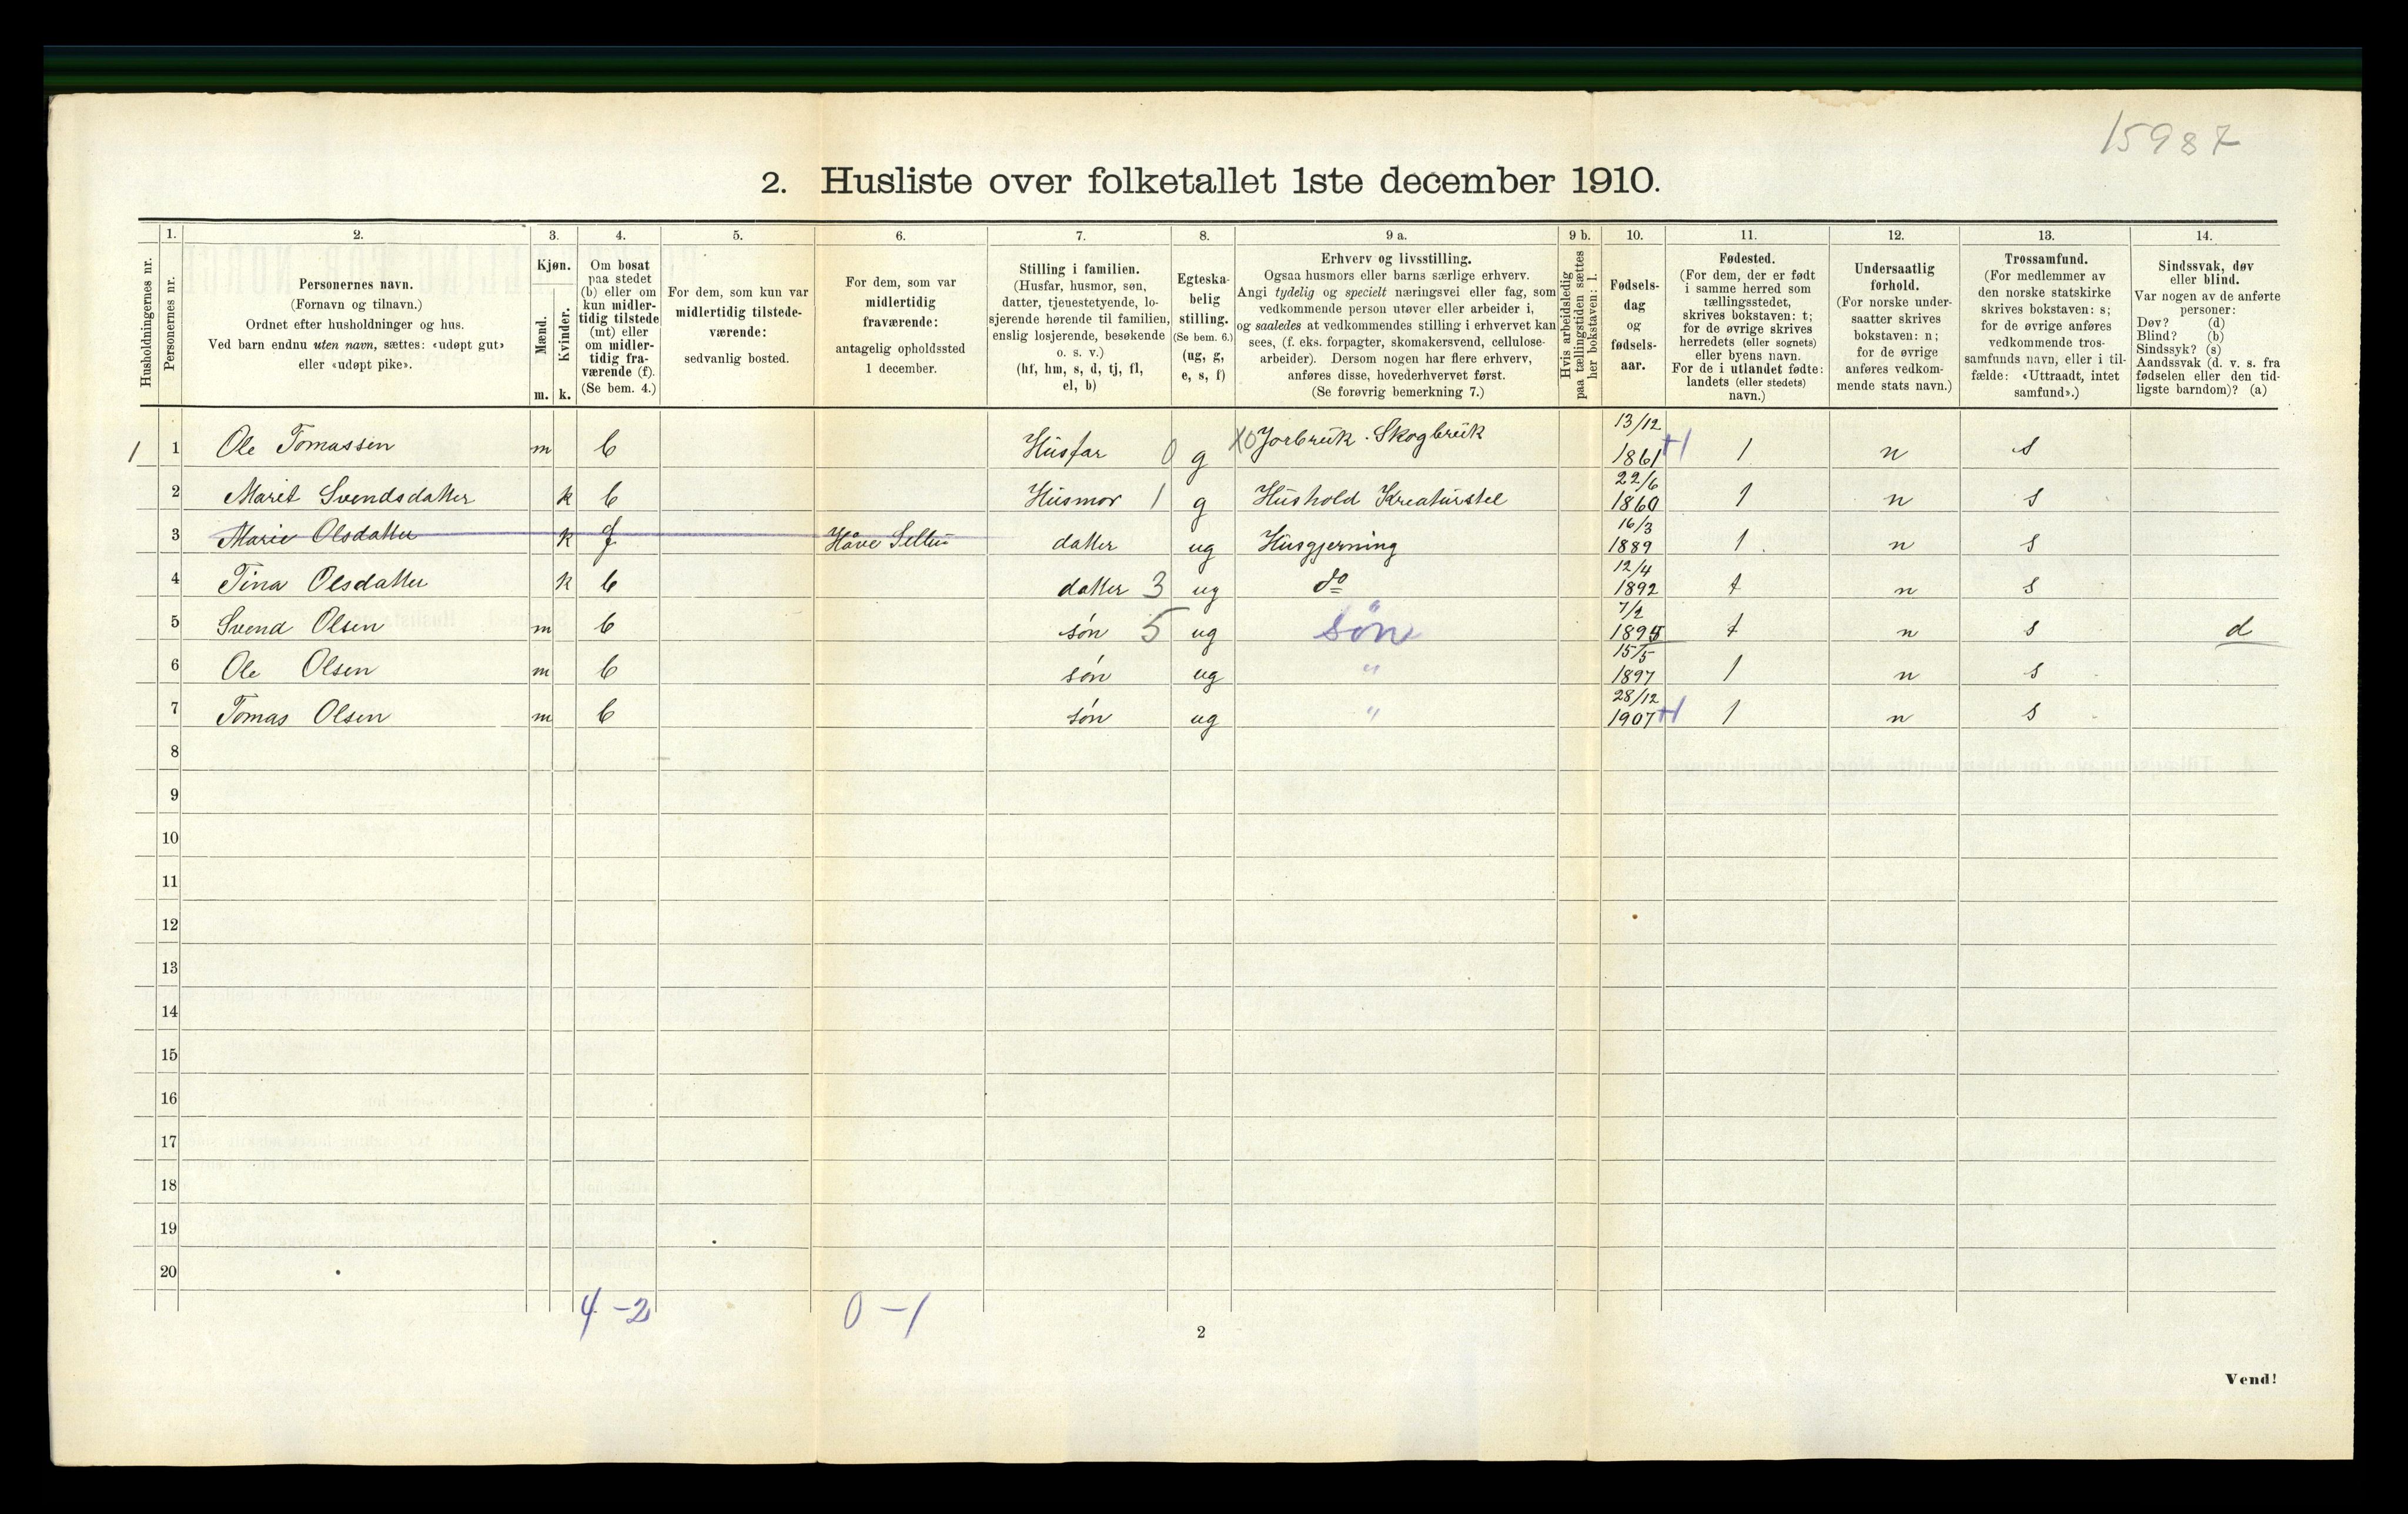 15987
2. Husliste over folketallet 1ste december 1910.
Husholdningernes nr.
1. Personernes nr.
2. Personernes navn. (Fornavn og tilnavn.) Ordnet efter husholdninger og hus. Ved barn endnu uten navn, sættes: «udøpt gut» eller «udøpt pike».
3. Kjøn. Mænd. m. Kvinder. k.
4. Om bosat paa stedet (b) eller om kun midlertidig tilstede (mt) eller om midlertidig fraværende (f). (Se bem. 4.)
5. For dem, som kun var midlertidig tilstedeværende: sedvanlig bosted.
6. For dem, som var midlertidig fraværende: antagelig opholdssted 1 december.
7. Stilling i familien. (Husfar, husmor, søn, datter, tjenestetyende, losjerende hørende til familien, enslig losjerende, besøkende o. s. v.) (hf, hm, s, d, tj, fl, el, b)
8. Egteskabelig stilling. (Se bem. 6.) (ug, g, e, s, f)
9 a. Erhverv og livsstilling. Ogsaa husmors eller barns særlige erhverv. Angi tydelig og specielt næringsvei eller fag, som vedkommende person utøver eller arbeider i, og saaledes at vedkommendes stilling i erhvervet kan sees, (f. eks. forpagter, skomakersvend, cellulosearbeider). Dersom nogen har flere erhverv, anføres disse, hovederhvervet først. (Se forøvrig bemerkning 7.)
9 b. Hvis arbeidsledig paa tællingstiden sættes her bokstaven: l.
10. Fødselsdag og fødselsaar.
11. Fødested. (For dem, der er født i samme herred som tællingsstedet, skrives bokstaven: t; for de øvrige skrives herredets (eller sognets) eller byens navn. For de i utlandet fødte: landets (eller stedets) navn.)
12. Undersaatlig forhold. (For norske undersaatter skrives bokstaven: n; for de øvrige anføres vedkommende stats navn.)
13. Trossamfund. (For medlemmer av den norske statskirke skrives bokstaven: s; for de øvrige anføres vedkommende trossamfunds navn, eller i tilfælde: «Uttraadt, intet samfund».)
14. Sindssvak, døv eller blind. Var nogen av de anførte personer: Døv? (d) Blind? (b) Sindssyk? (s) Aandssvak (d. v. s. fra fødselen eller den tidligste barndom)? (a)
1 1 Ole Tomassen m b Husfar 0 g X0 Jorbruk. Skogbruk 13/12 1861 t n s
2 Marit Svendsdatter k b Husmor 1 g Hushold Kreaturstel 22/6 1860 t n s
3 Marie Olsdatter k f Håve datter ug Husgjerning 16/3 1889 t n s
4 Tina Olsdatter k b datter 3 ug do 12/4 1892 t n s
5 Svend Olsen m b søn 5 ug søn 7/2 1895 t n s d
6 Ole Olsen m b søn ug " 15/5 1897 t n s
7 Tomas Olsen m b søn ug " 28/12 1907 t n s
8
9
10
11
12
13
14
15
16
17
18
19
20
4-2 0-1
2
Vend!